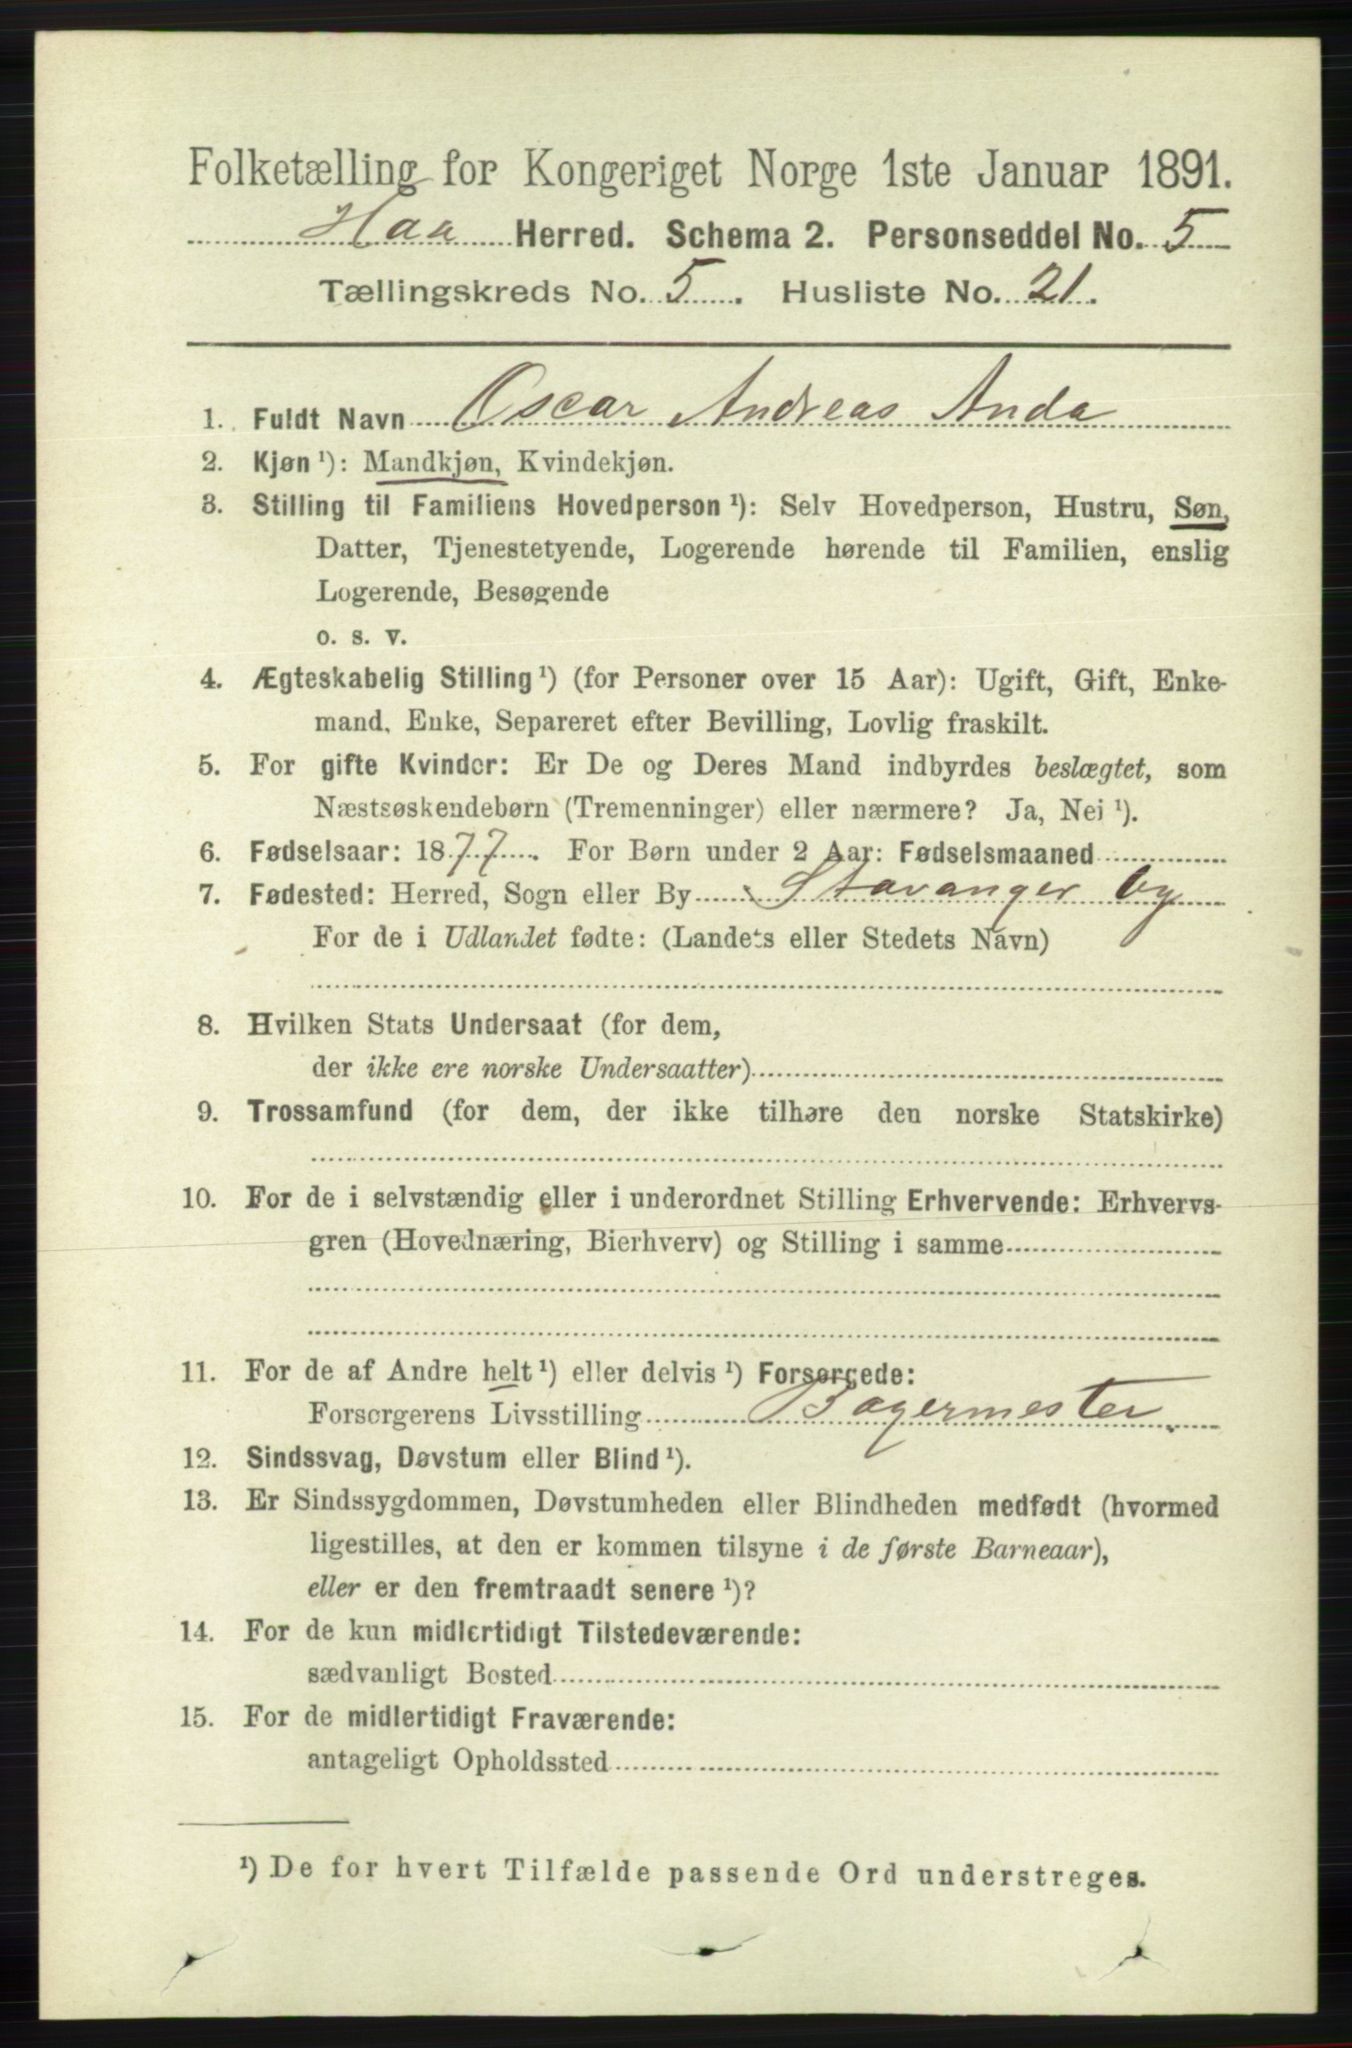 Folketælling for Kongeriget Norge 1ste Januar 1891.
Haa Herred. Schema 2. Personseddel No. 5
Tællingskreds No. 5. Husliste No. 21.
1. Fuldt Navn Oscar Andreas Anda
2. Kjøn ¹): Mandkjøn, Kvindekjøn.
3. Stilling til Familiens Hovedperson ¹): Selv Hovedperson, Hustru, Søn,
Datter, Tjenestetyende, Logerende hørende til Familien, enslig
Logerende, Besøgende
o. s. v.
4. Ægteskabelig Stilling ¹) (for Personer over 15 Aar): Ugift, Gift, Enke-
mand, Enke, Separeret efter Bevilling, Lovlig fraskilt.
5. For gifte Kvinder: Er De og Deres Mand indbyrdes beslægtet, som
Næstsøskendebørn (Tremenninger) eller nærmere? Ja, Nei ¹).
6. Fødselsaar: 1877. For Børn under 2 Aar: Fødselsmaaned
7. Fødested: Herred, Sogn eller By Stavanger by
For de i Udlandet fødte: (Landets eller Stedets Navn)
8. Hvilken Stats Undersaat (for dem,
der ikke ere norske Undersaatter)
9. Trossamfund (for dem, der ikke tilhøre den norske Statskirke)
10. For de i selvstændig eller i underordnet Stilling Erhvervende: Erhvervs-
gren (Hovednæring, Bierhverv) og Stilling i samme
11. For de af Andre helt ¹) eller delvis ¹) Forsørgede:
Forsørgerens Livsstilling Bagermester.
12. Sindssvag, Døvstum eller Blind ¹).
13. Er Sindssygdommen, Døvstumheden eller Blindheden medfødt (hvormed
ligestilles, at den er kommen tilsyne i de første Barneaar),
eller er den fremtraadt senere ¹)?
14. For de kun midlertidigt Tilstedeværende:
sædvanligt Bosted
15. For de midlertidigt Fraværende:
antageligt Opholdssted
¹) De for hvert Tilfælde passende Ord understreges.